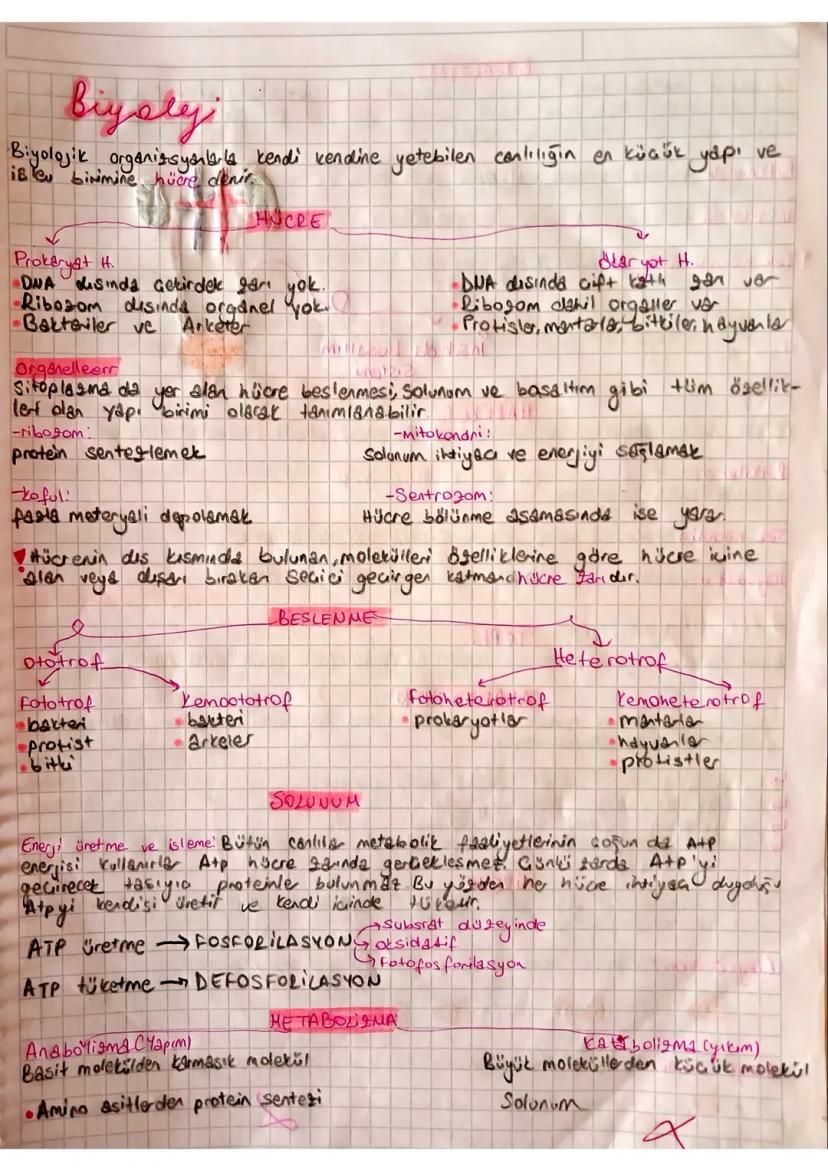 Biyoloji
Biyolojik organizsyonlarla kendi kendine yetebilen canlılığın en küçük yapı ve
işlev birimine hücre denir.
HÜCRE
Prokaryot H.
Ökaryot H.
• DNA dışında çekirdek zarı yok.
• DNA dışında çift katlı zarı var
• Ribozom dışında organel yok.
• Ribozom dahil organller var
• Bakteriler ve Arkeler
• Protisler, mantarlar, bitkiler, hayvanlar
Organelleerr
Sitoplazma da yer alan hücre beslenmesi, solunum ve boşaltım gibi tüm özellik-
leri olan yapı birimi olarak tanımlanabilir
-ribozom:
-Mitokondri:
protein sentezlemek
Solunum ihtiyacı ve enerjiyi sağlamak
-koful:
-Sentrozom:
fazla meteryali depolamak
Hücre bölünme aşamasında ise yarar.
Hücrenin dış kısmında bulunan, molekülleri özelliklerine göre hücre içine
alan veya dışarı bırakan seçici geçirgen katmana hücre zarı dır.
BESLENME
Ototrof
Heterotrof
Fototrof
Kemoototrof
Fotoheterotrof
Kemoheterotrof
• bakteri
• bakteri
• prokaryotlar
• mantarlar
• protist
• arkeler
• hayvanlar
• bitki
• protistler
SOLUNUM
Enerji üretme ve isleme: Bütün canlılar metabolik faaliyetlerinin çoğun da Atp
energisi kullanırlar Atp hücre zarında gerçekleşmez. Çünkü zarda Atp'yi
geçirecek taşıyıcı proteinler bulunmaz Bu yüzden her hücre ihtiyacı duyduğu
Atpyi kendisi üretir ve kendi içinde tüketir.
ATP üretme → FOSFORİLASYON
→ Subsrat düzeyinde
→ oksidatif
→ Fotofosforilasyon
ATP tüketme → DEFOSFORİLASYON
METABOLİZMA
Anabolizma (Yapım)
Katabolizma (yıkım)
Basit molekülden karmaşık molekül
Büyük moleküllerden küçük molekül
• Amino asitlerden protein sentezi
Solunum